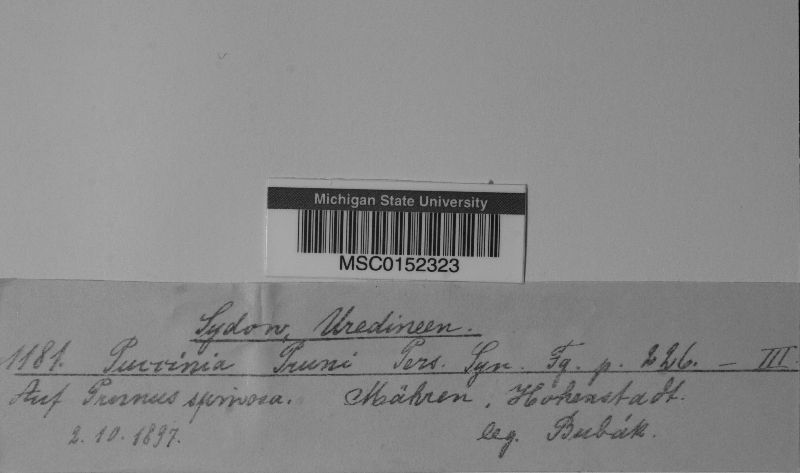 Michigan State University
MSC0152323
Sydow, Uredineen.
1181. Puccinia Pruni Pers. Syn. Fg. p. 226. — III.
Auf Prunus spinosa. Mähren, Hohenstadt.
2.10.1897. leg. Bubák.